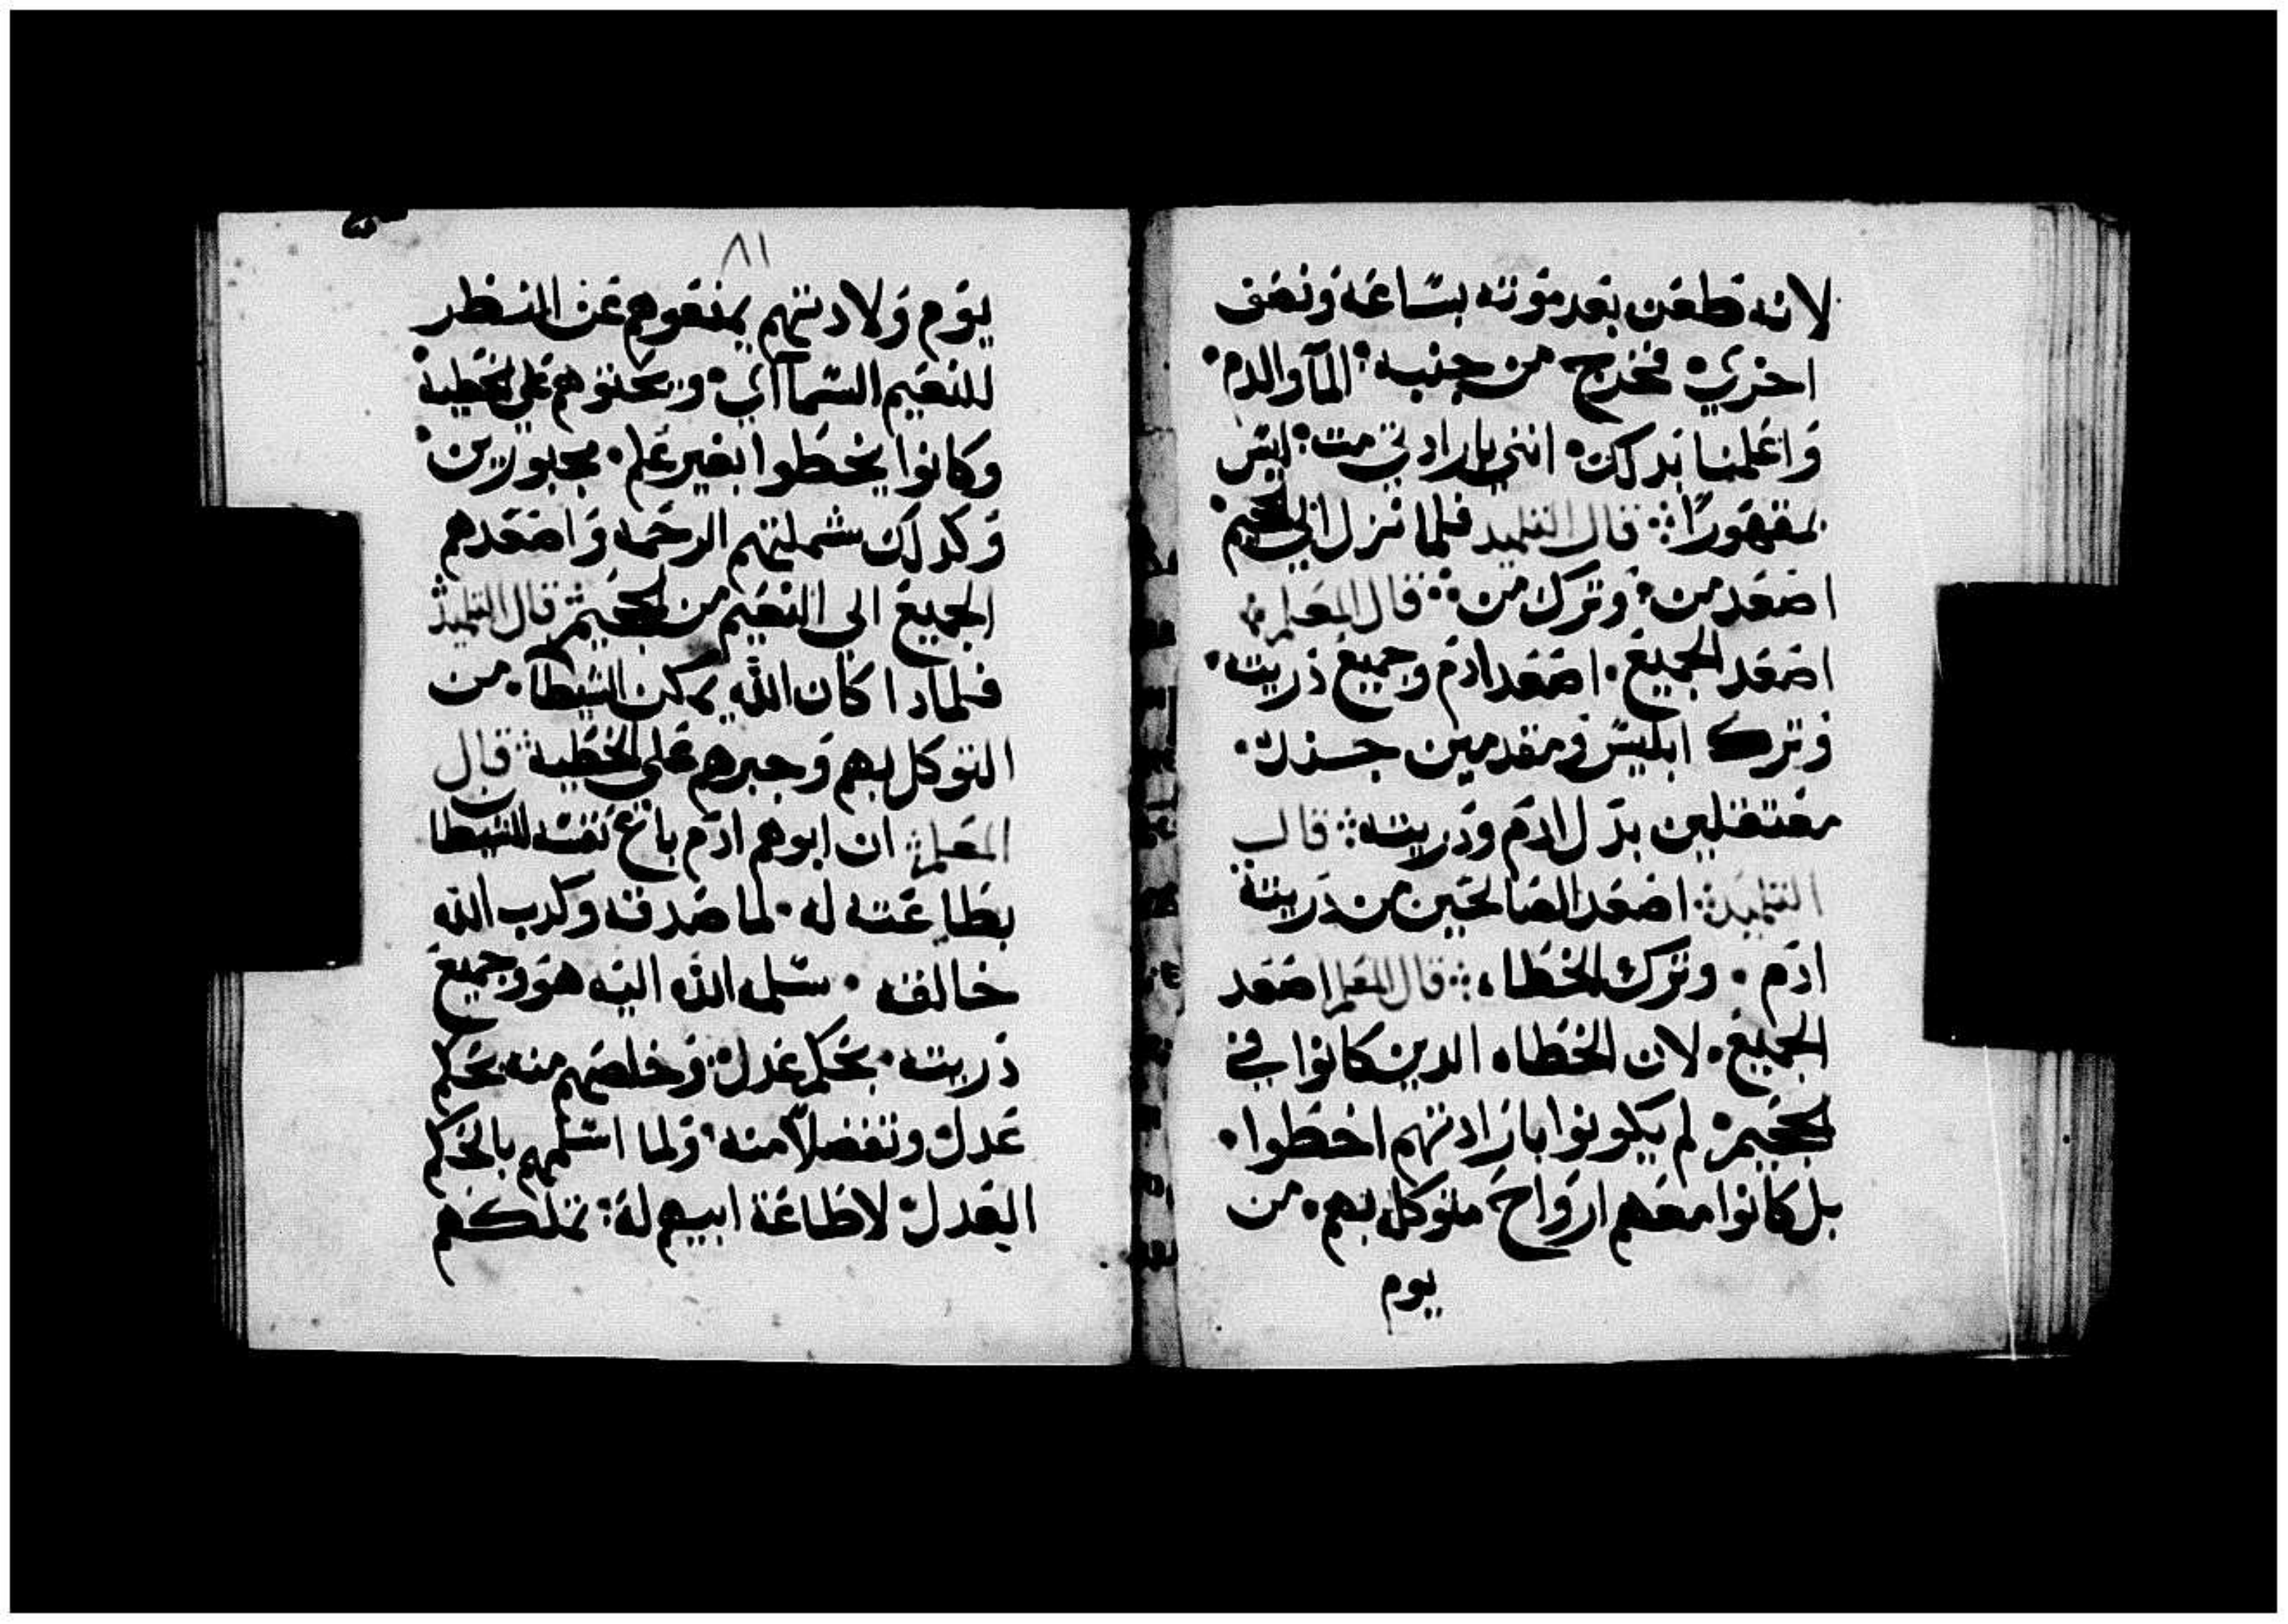 لانه طعن بعد موته بساعه ونصف
اخري فخرج من جنبه الما والدم
واعلمنا بدلك انني بارادتي مت ليس
مقهورا قال التلميد فلما نزل الي الجحيم
اصعد من وترك من قال المعلم
اصعد الجميع اصعد ادم وجميع ذريته
وترك ابليس ومقدمين جنده
معتقلين بدل ادم ودريته قال
التلميد اصعد الصالحين من دريته
ادم وترك الخطاه قال المعلم اصعد
الجميع لان الخطاه الدين كانوا في
الجحيم لم يكونوا بارادتهم اخطوا
بل كانوا معهم ارواح متوكله بهم من
يوم
٨١
يوم ولادتهم يمنعوهم عن النظر
للنعيم السماآي ويحتوهم علي الخطيه
وكانوا يخطوا بغير علم مجبورين
وكدلك شملتهم الرحمه واصعدهم
الجميع الى النعيم من الجحيم قال التلميد
فلمادا كان الله يمكن الشيطان من
التوكل بهم وجبرهم على الخطيه قال
المعلم ان ابوهم ادم باع نفسه للشيطان
بطاعته له لما صدقه وكدب الله
خالقه سلمه الله اليه هو وجميع
ذريته بحكم عدل وخلصهم منه بحكم
عدل وتفضلا منه ولما استلمهم بالحكم
العدل لاطاعة ابيهم له تملكهم